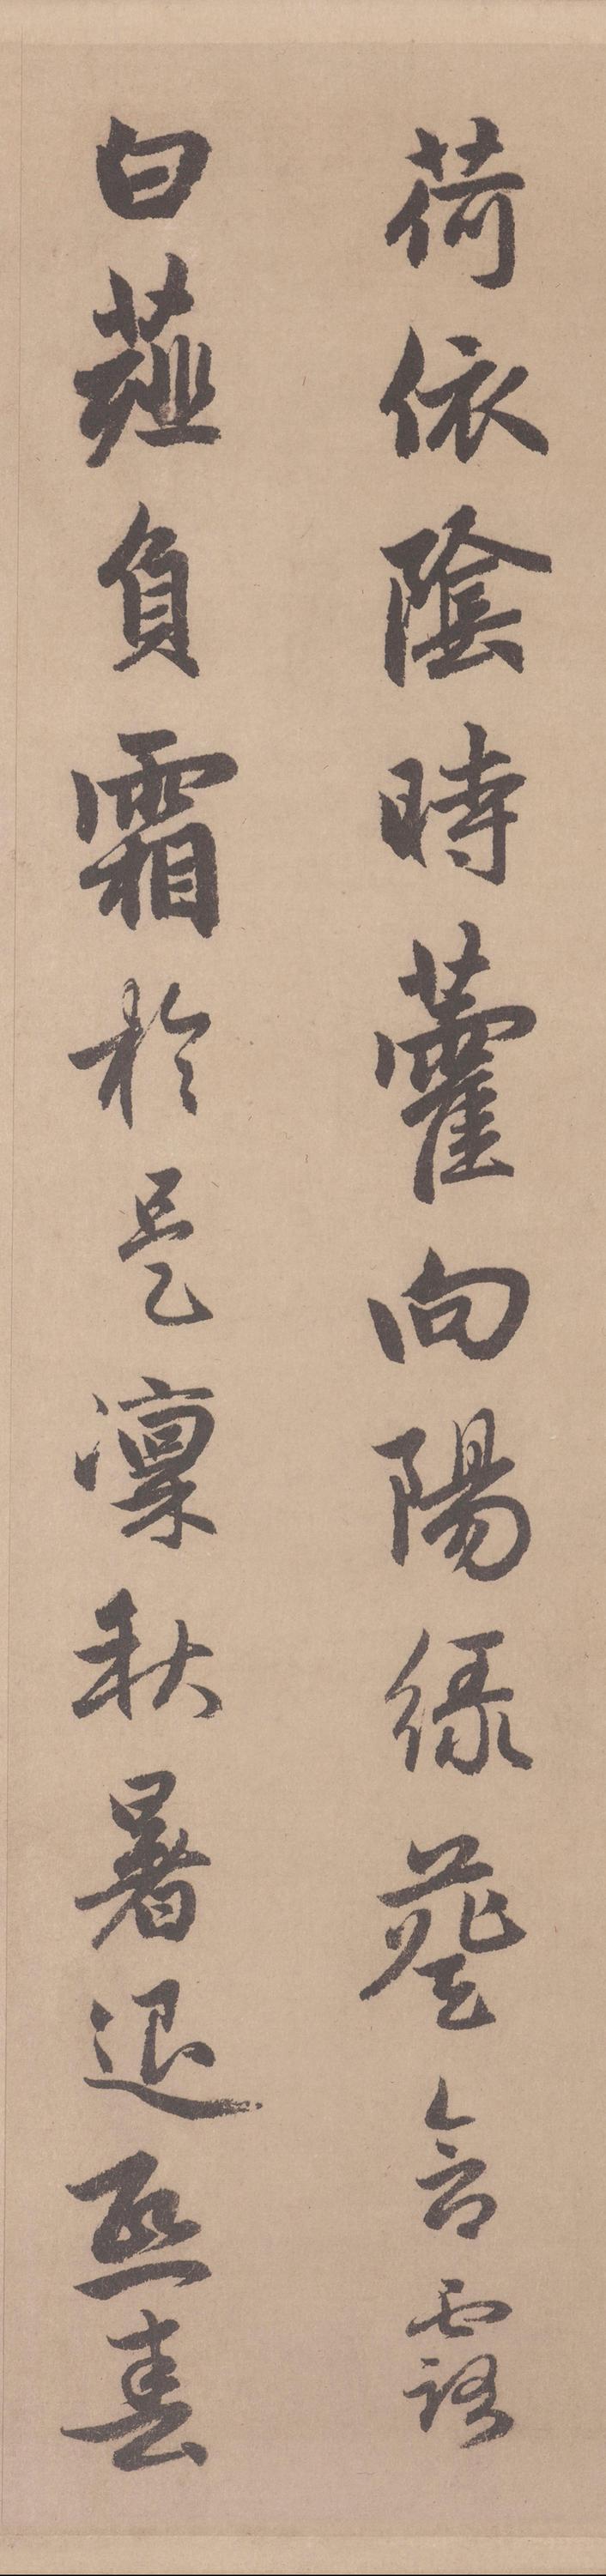 荷依陰時藿向陽綠葵含露
白薤負霜於是凜秋暑退熙春